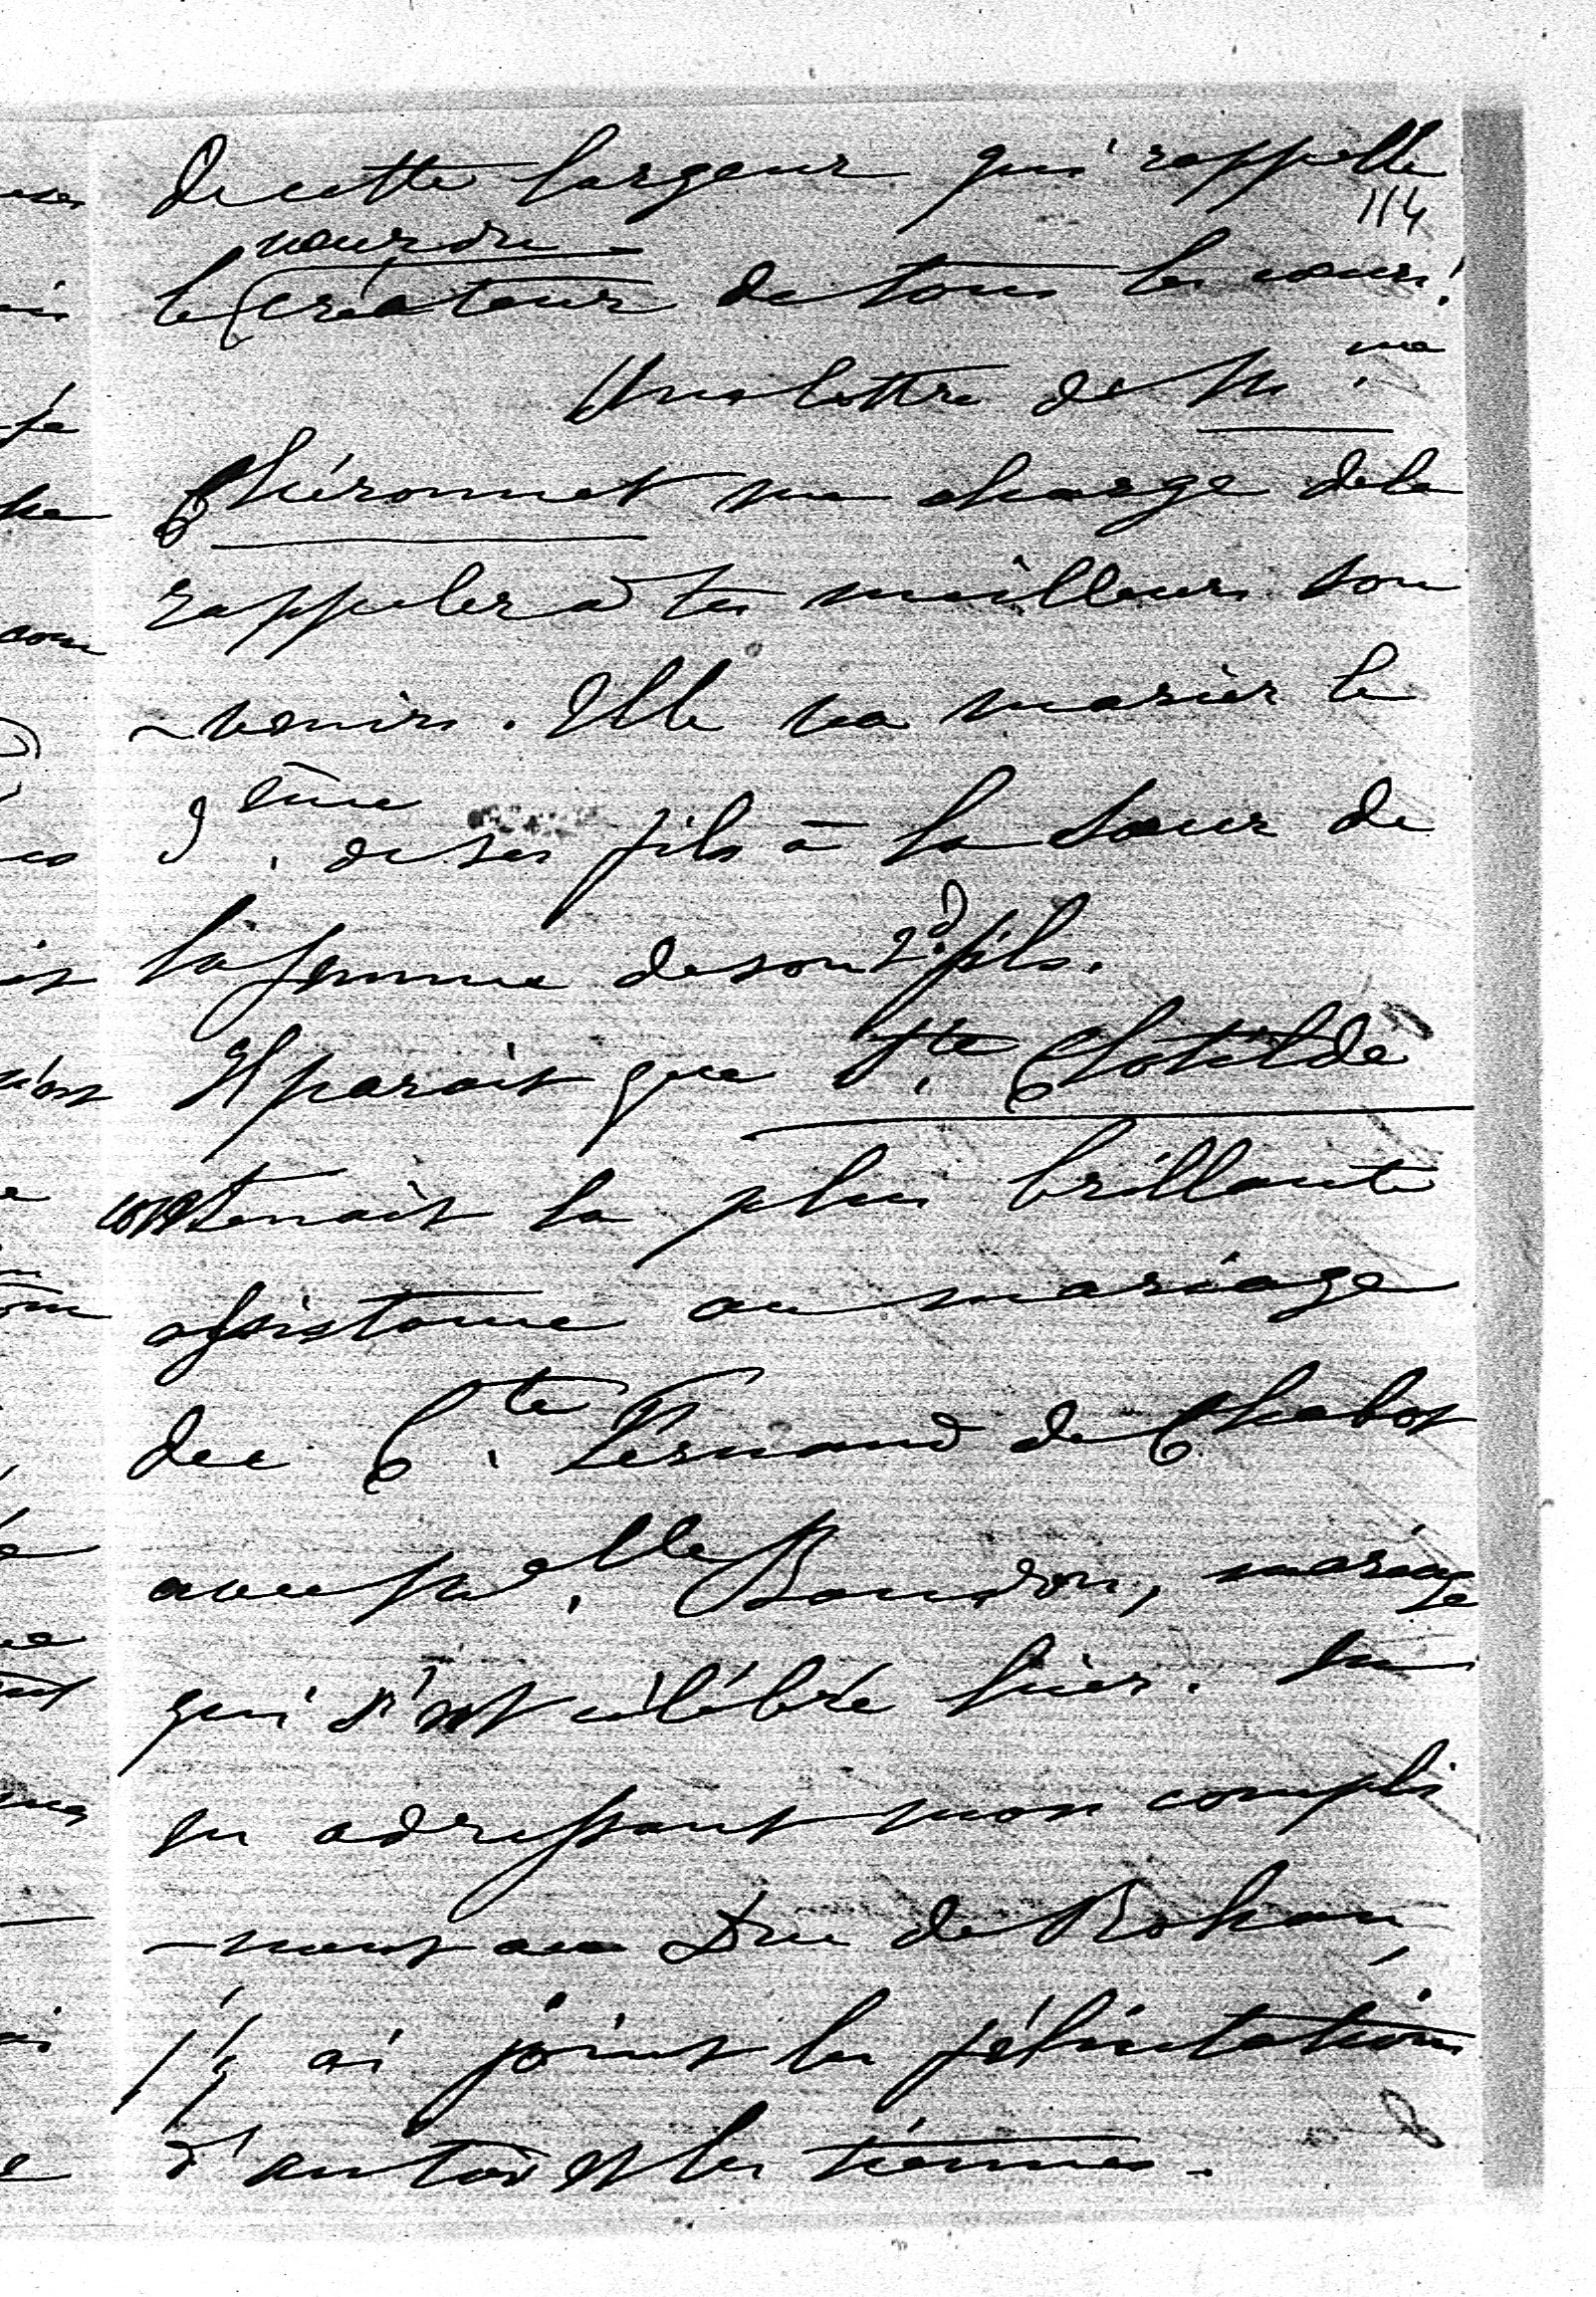 de cette largeur qui rappelle
114
coeur du
le créateur de tous les coeurs!
Une lettre de M.me
Chéronnet me charge de la
rappeler à tes meilleurs sou
-venirs. Elle va marier le
3.ème de ses fils à la soeur de
la femme de son 2.d fils.
Il parait que Ste. Clotilde
contenait la plus brillante
assistance au mariage
du C.te Fernand de Chabot
avec Me.lle Baudon, mariage
qui s'est célébré hier. En
en adressant mon compli
-ment au Duc de Rohan,
j'y ai joint les félicitations
d'Antoi et les tiennes.